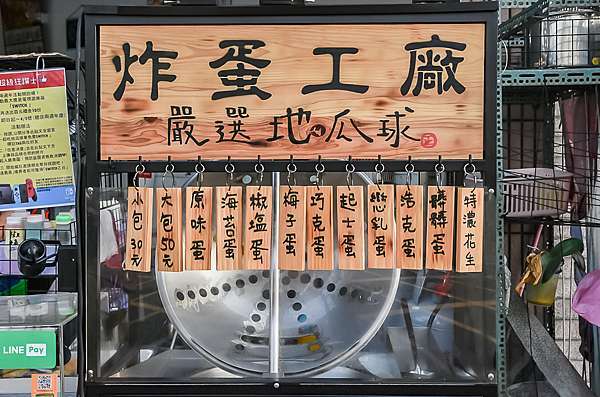 炸蛋工廠
嚴選地瓜球
小包30元
大包50元
原味蛋
海苔蛋
椒塩蛋
梅子蛋
巧克蛋
起士蛋
戀乳蛋
浩克蛋
髒髒蛋
特濃花生
LINE Pay